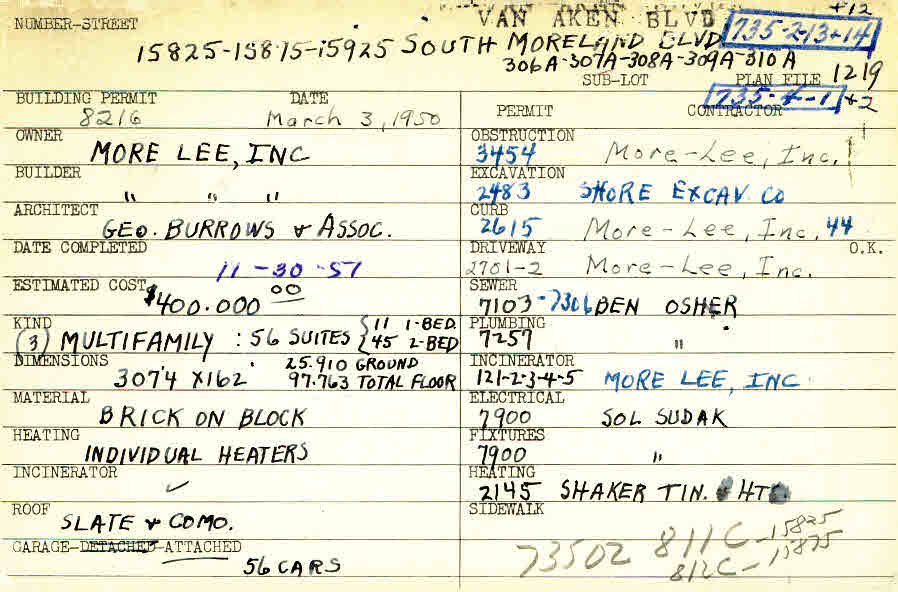 NUMBER-STREET
VAN AKEN BLVD
+12
735-2-13+14
15825-15875-15925 SOUTH MORELAND BLVD
306A-307A-308A-309A-310A
SUB-LOT PLAN FILE 1219
735-4-1 +2
BUILDING PERMIT DATE
8216 March 3, 1950
PERMIT CONTRACTOR
OWNER
MORE LEE, INC
OBSTRUCTION
3454 More-Lee, Inc.
BUILDER
" " "
EXCAVATION
2483 SHORE EXCAV. CO
ARCHITECT
GEO. BURROWS & ASSOC.
CURB
2615 More-Lee, Inc. 44
DATE COMPLETED
11-30-51
DRIVEWAY O.K.
2701-2 More-Lee, Inc.
ESTIMATED COST
$400.000 00
SEWER
7103-7306 BEN OSHER
KIND
(3) MULTIFAMILY : 56 SUITES { 11 1-BED. 45 2-BED
PLUMBING
7257 "
DIMENSIONS
307'4 X 162' 25.910 GROUND
97.763 TOTAL FLOOR
INCINERATOR
121-2-3-4-5 MORE LEE, INC
MATERIAL
BRICK ON BLOCK
ELECTRICAL
7900 SOL SUDAK
HEATING
INDIVIDUAL HEATERS
FIXTURES
7900 "
INCINERATOR
✓
HEATING
2145 SHAKER TIN. & HTG.
ROOF
SLATE & COMO.
SIDEWALK
GARAGE-DETACHED-ATTACHED
56 CARS
73502 811C-15825
812C-15875